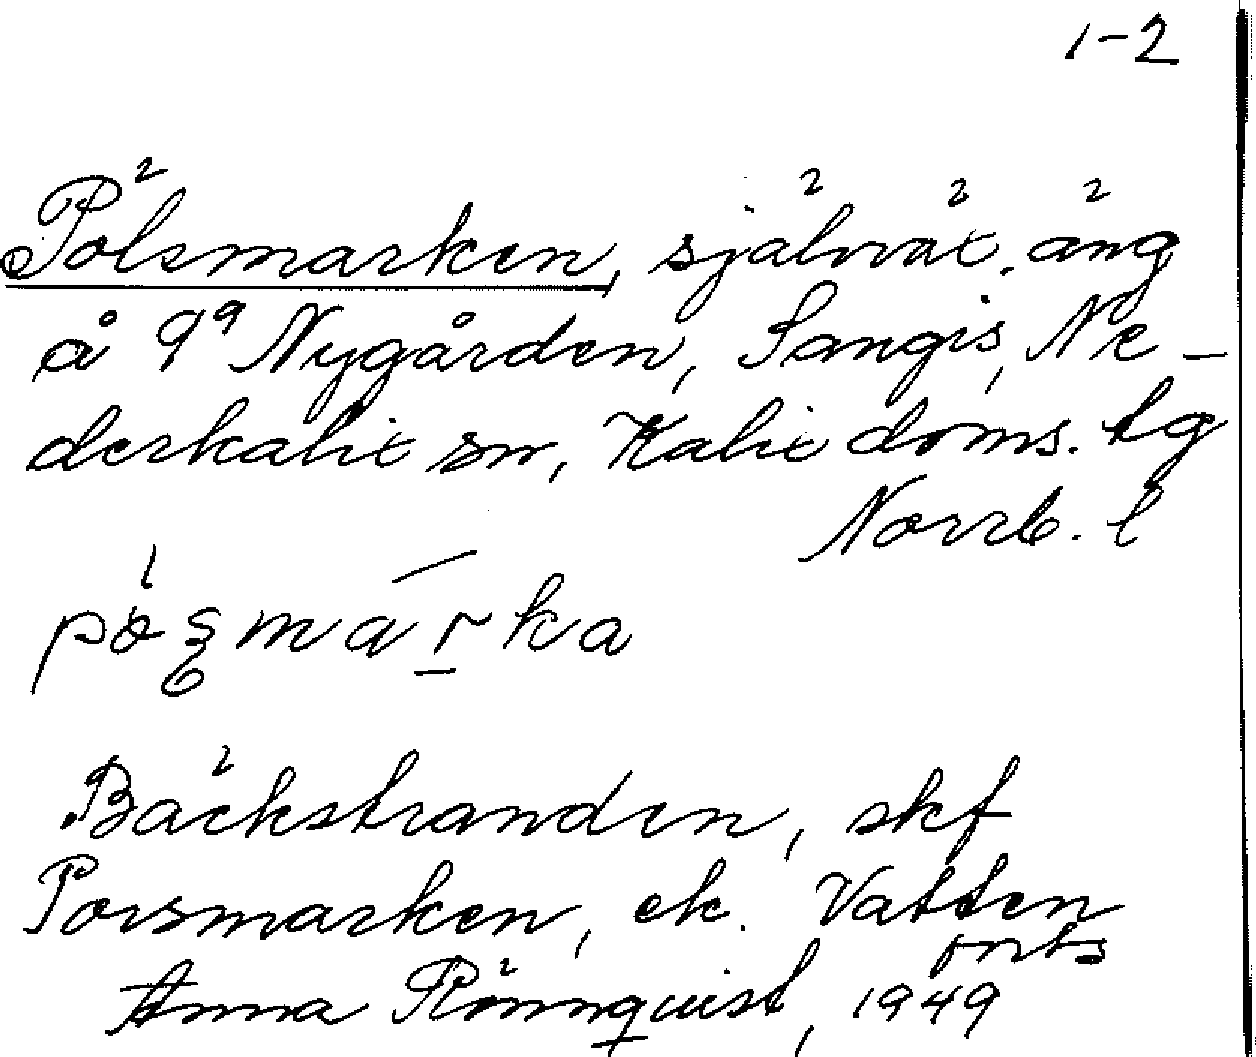 1-2
Pölsmarken, självväx. äng
å 9⁹ Nygården, Sangis, Ne-
derkalix sn, Kalix doms. tg
Norrb. l
Bäckstranden, skf
Porsmarken, ek. Vatten
forts
Anna Rönnquist, 1949